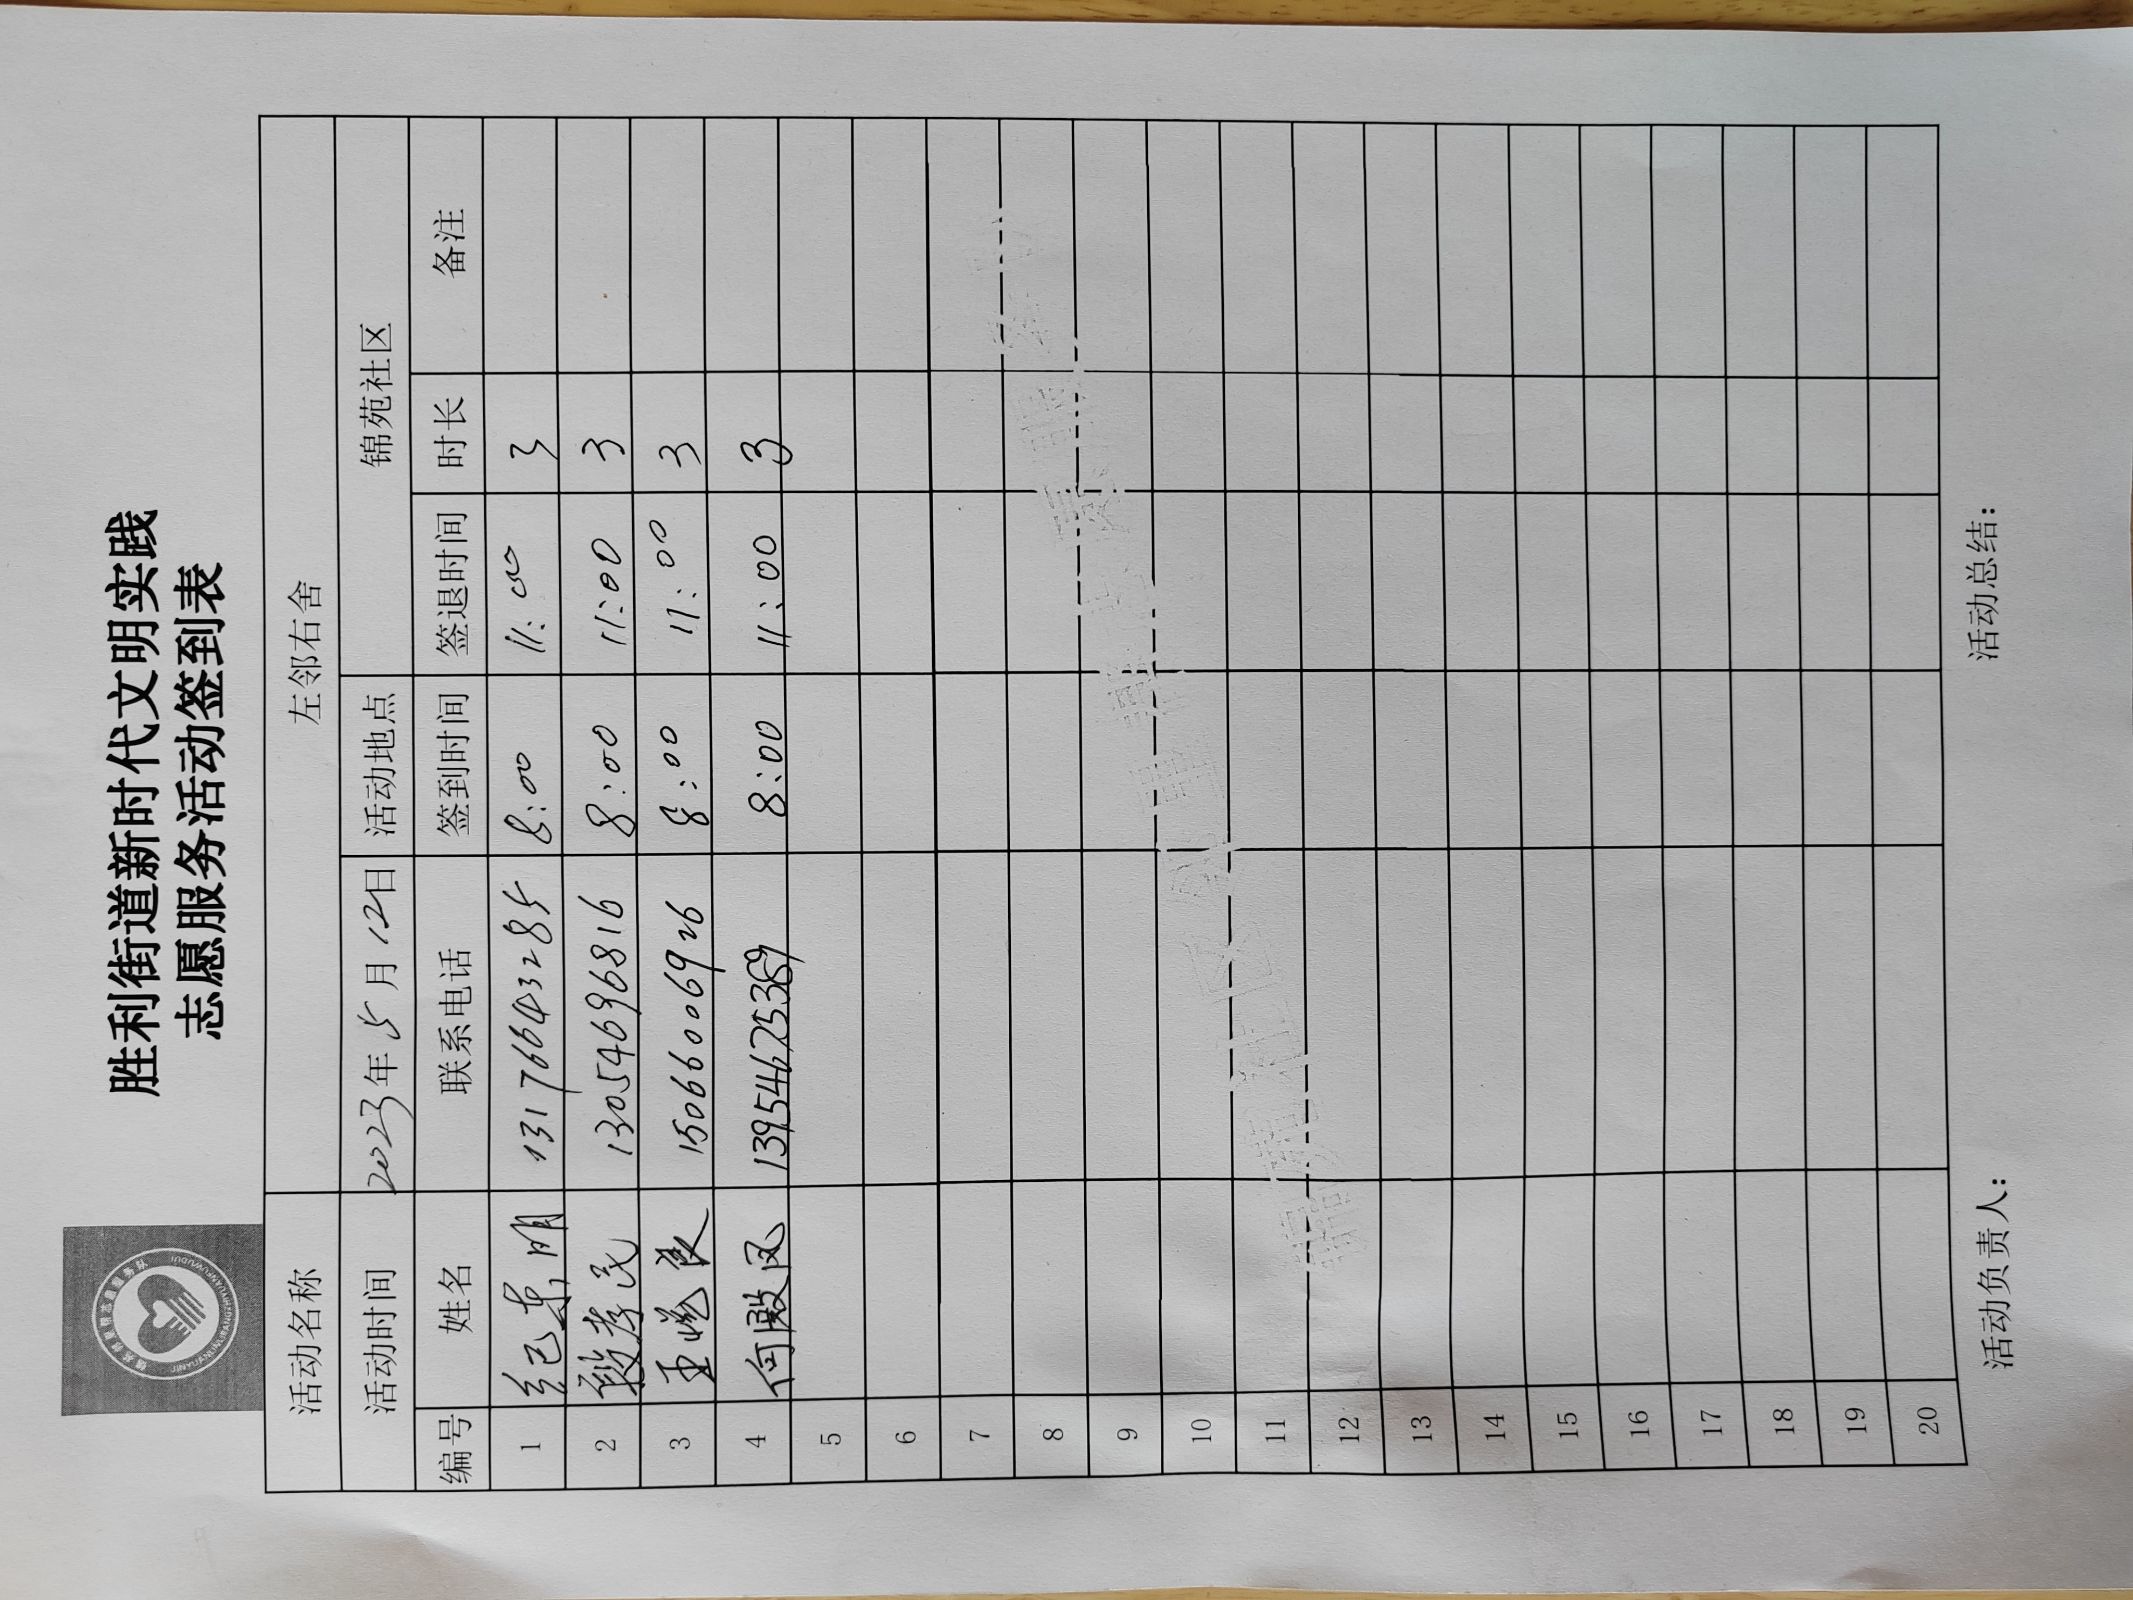 胜利街道新时代文明实践
志愿服务活动签到表
活动名称 左邻右舍
活动时间 2023年5月12日 活动地点 锦苑社区
编号 姓名 联系电话 签到时间 签退时间 时长 备注
1 纪东明 13176643285 8:00 11:00 3
2 段孝民 13054696816 8:00 11:00 3
3 王 15066006926 8:00 11:00 3
4 何殿凤 13954625369 8:00 11:00 3
5
6
7
8
9
10
11
12
13
14
15
16
17
18
19
20
活动负责人: 活动总结: